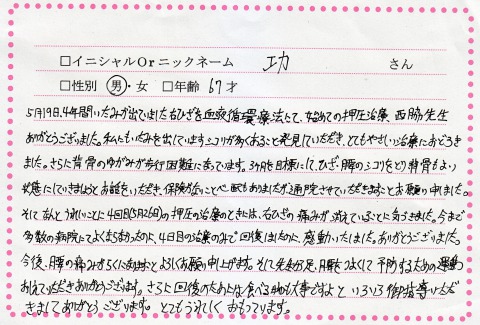 □イニシャルOrニックネーム 功 さん
□性別 男・女 □年齢 67才
5月19日、4年間いたみが出ていました右ひざを血液循環療法にて、始めての押圧治療、西脇先生
ありがとうございました。私にもいたみを出していますシコリが多くあること発見していただき、とてもやさしい治療におどろき
ました。さらに背骨のゆがみが歩行困難になっています。3ヶ月を目標にして、ひざ、腰のシコリをとり背骨もよい
状態にしていきましょうとお話をいただき、保険がないこと心配もありましたが通院させていただきますとお願い申しました。
そしてなんとうれしいことに4回目(5月26日)の押圧の治療のときには、右ひざの痛みが消えていることに気づきました。今まで
多数の病院にてよくならなかったのに、4日目の治療のみで回復しましたのに、感動いたしました。ありがとうございました。
今後、腰の痛みがらくになりますようよろしくお願い申し上げます。そして先生が足、腰をよくして予防するための運動
おしえていただきありがとうございます。さらに回復のためには食べる物も大事ですよといろいろ御指導いただ
きましてありがとうございます。とてもうれしくおもっています。